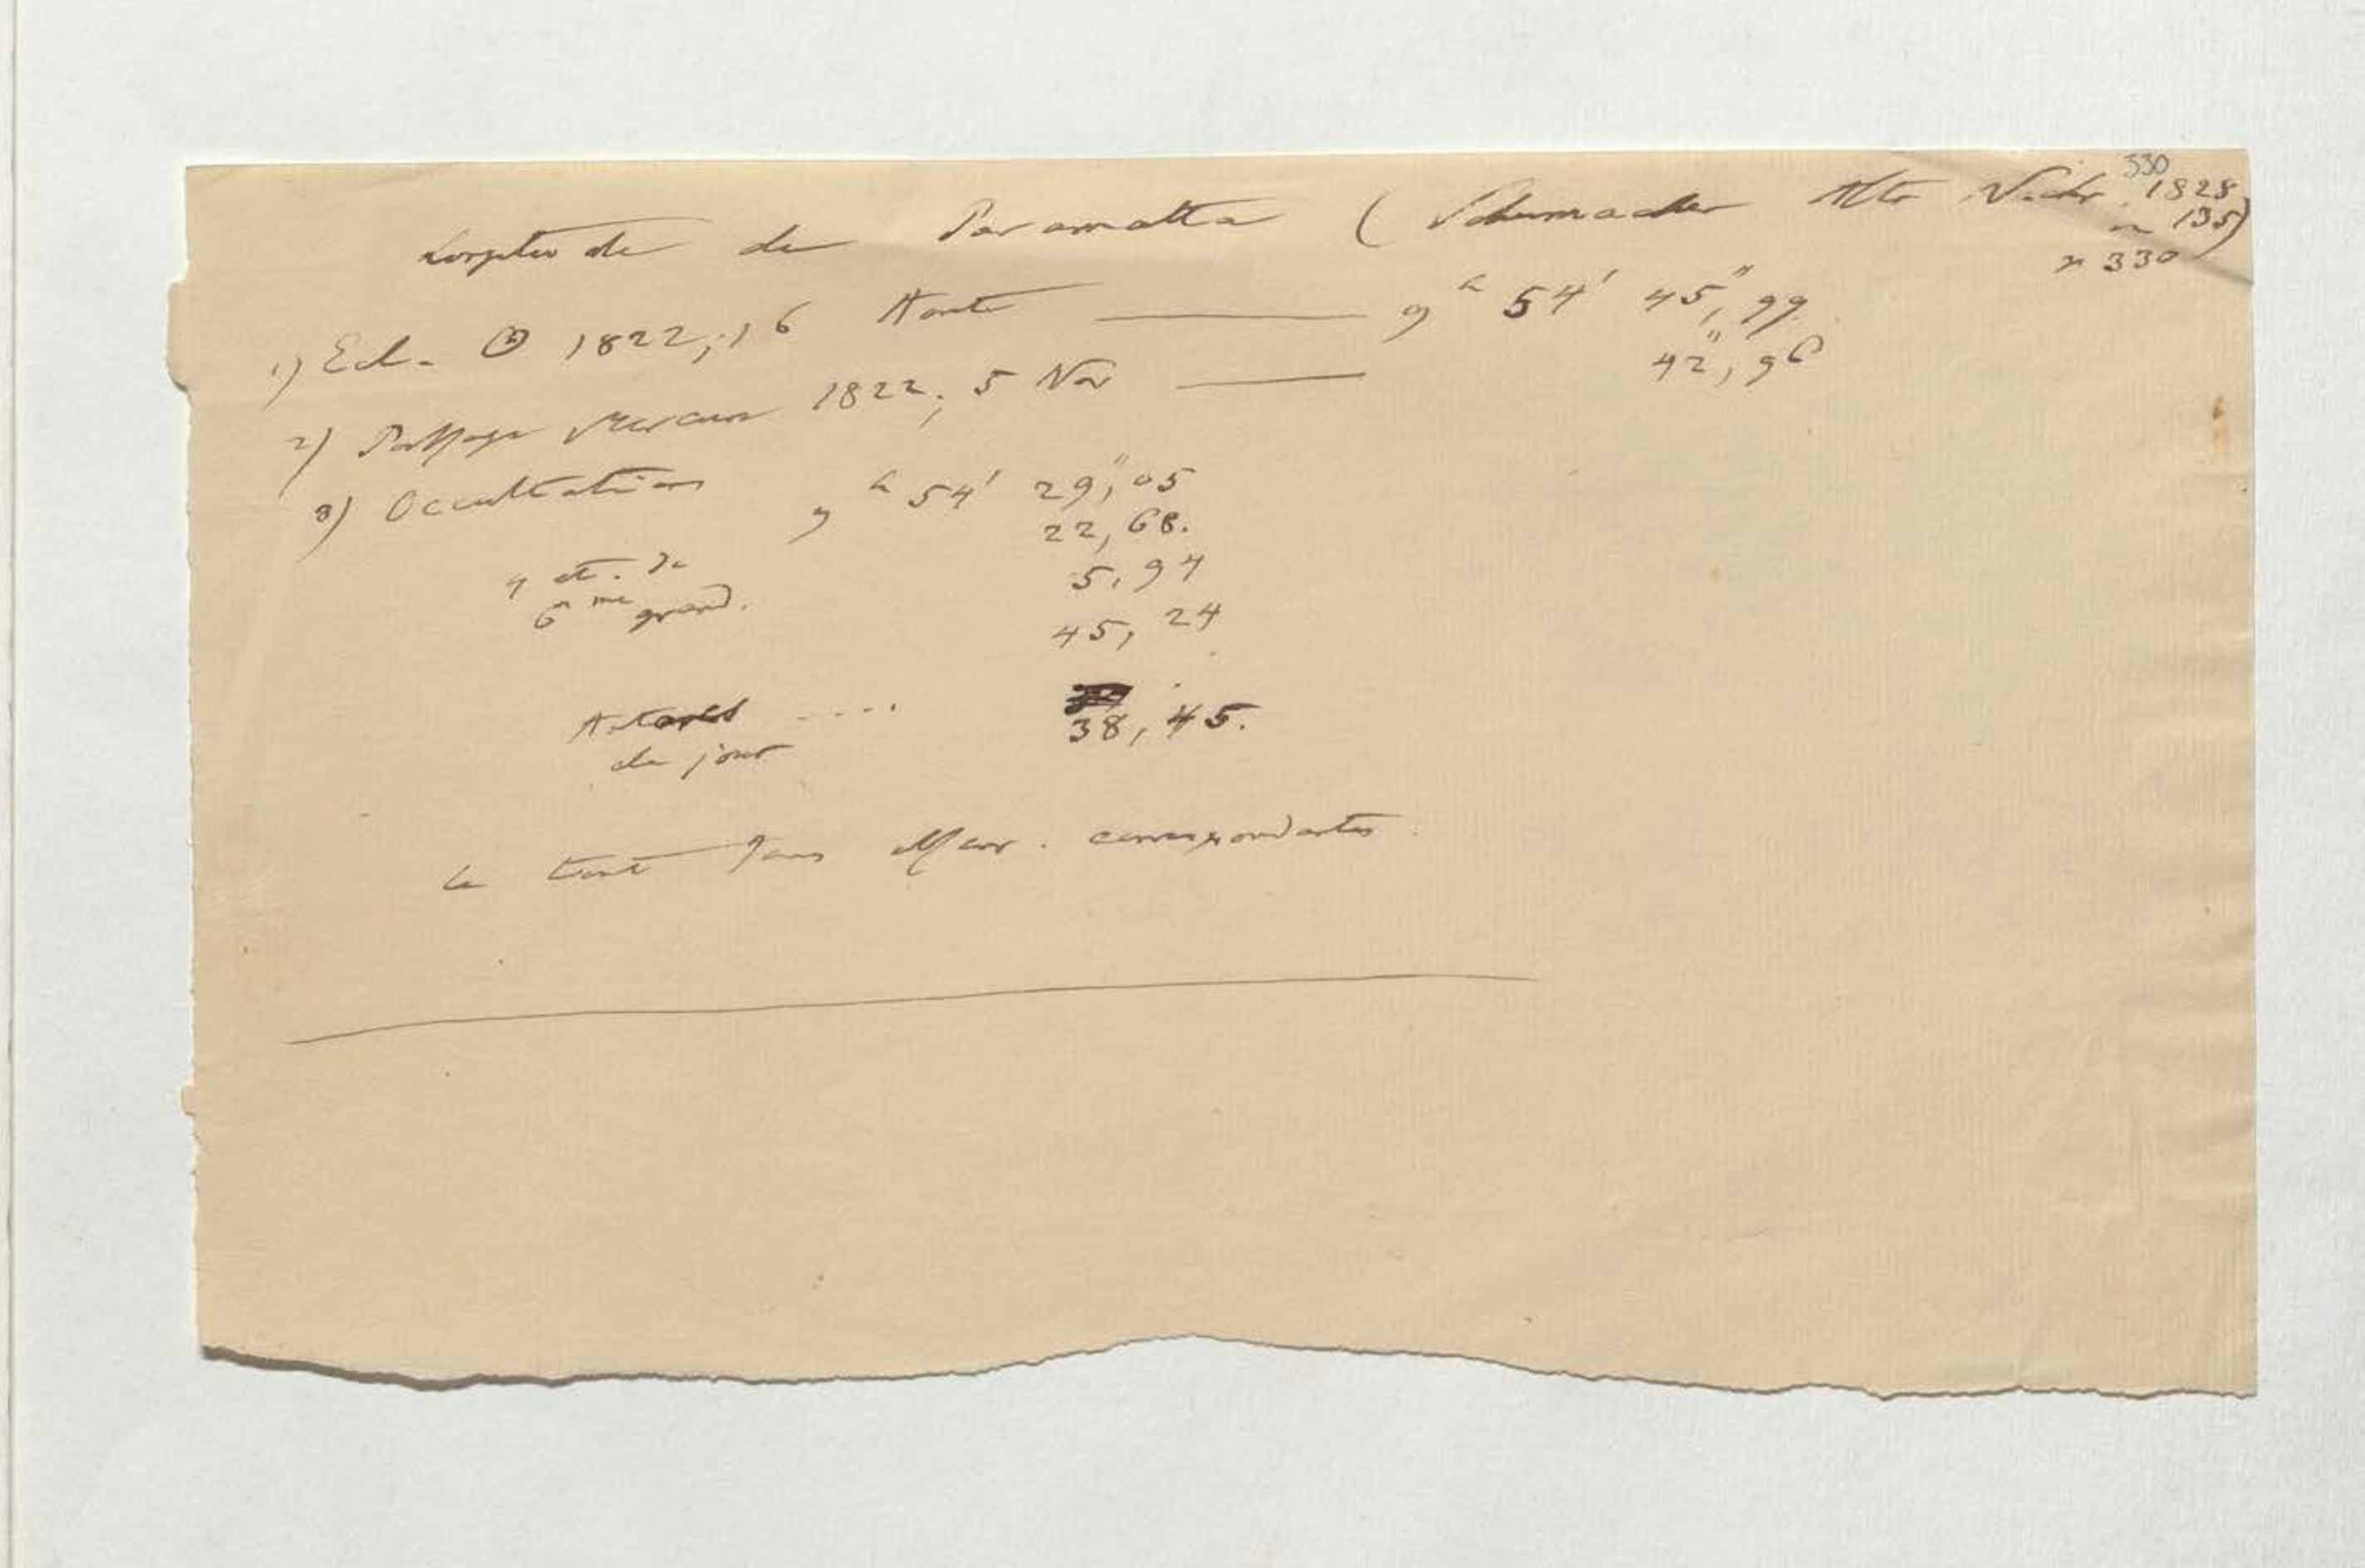 330
Longitude de Paramatta (Schumacher Astr Nachr. 1828
n 135)
p 330
1) Ecl. ☉ 1822, 16 Août —— 9h 54' 45",99
2) Passage Mercure 1822, 5 Nov —— 42",96
3) Occultations 9h 54' 29",05
22,68.
4 et. de 5,94
6me grand.
45,24
Antares .... 38,45.
de jour
le tout sans observ. correspondantes.